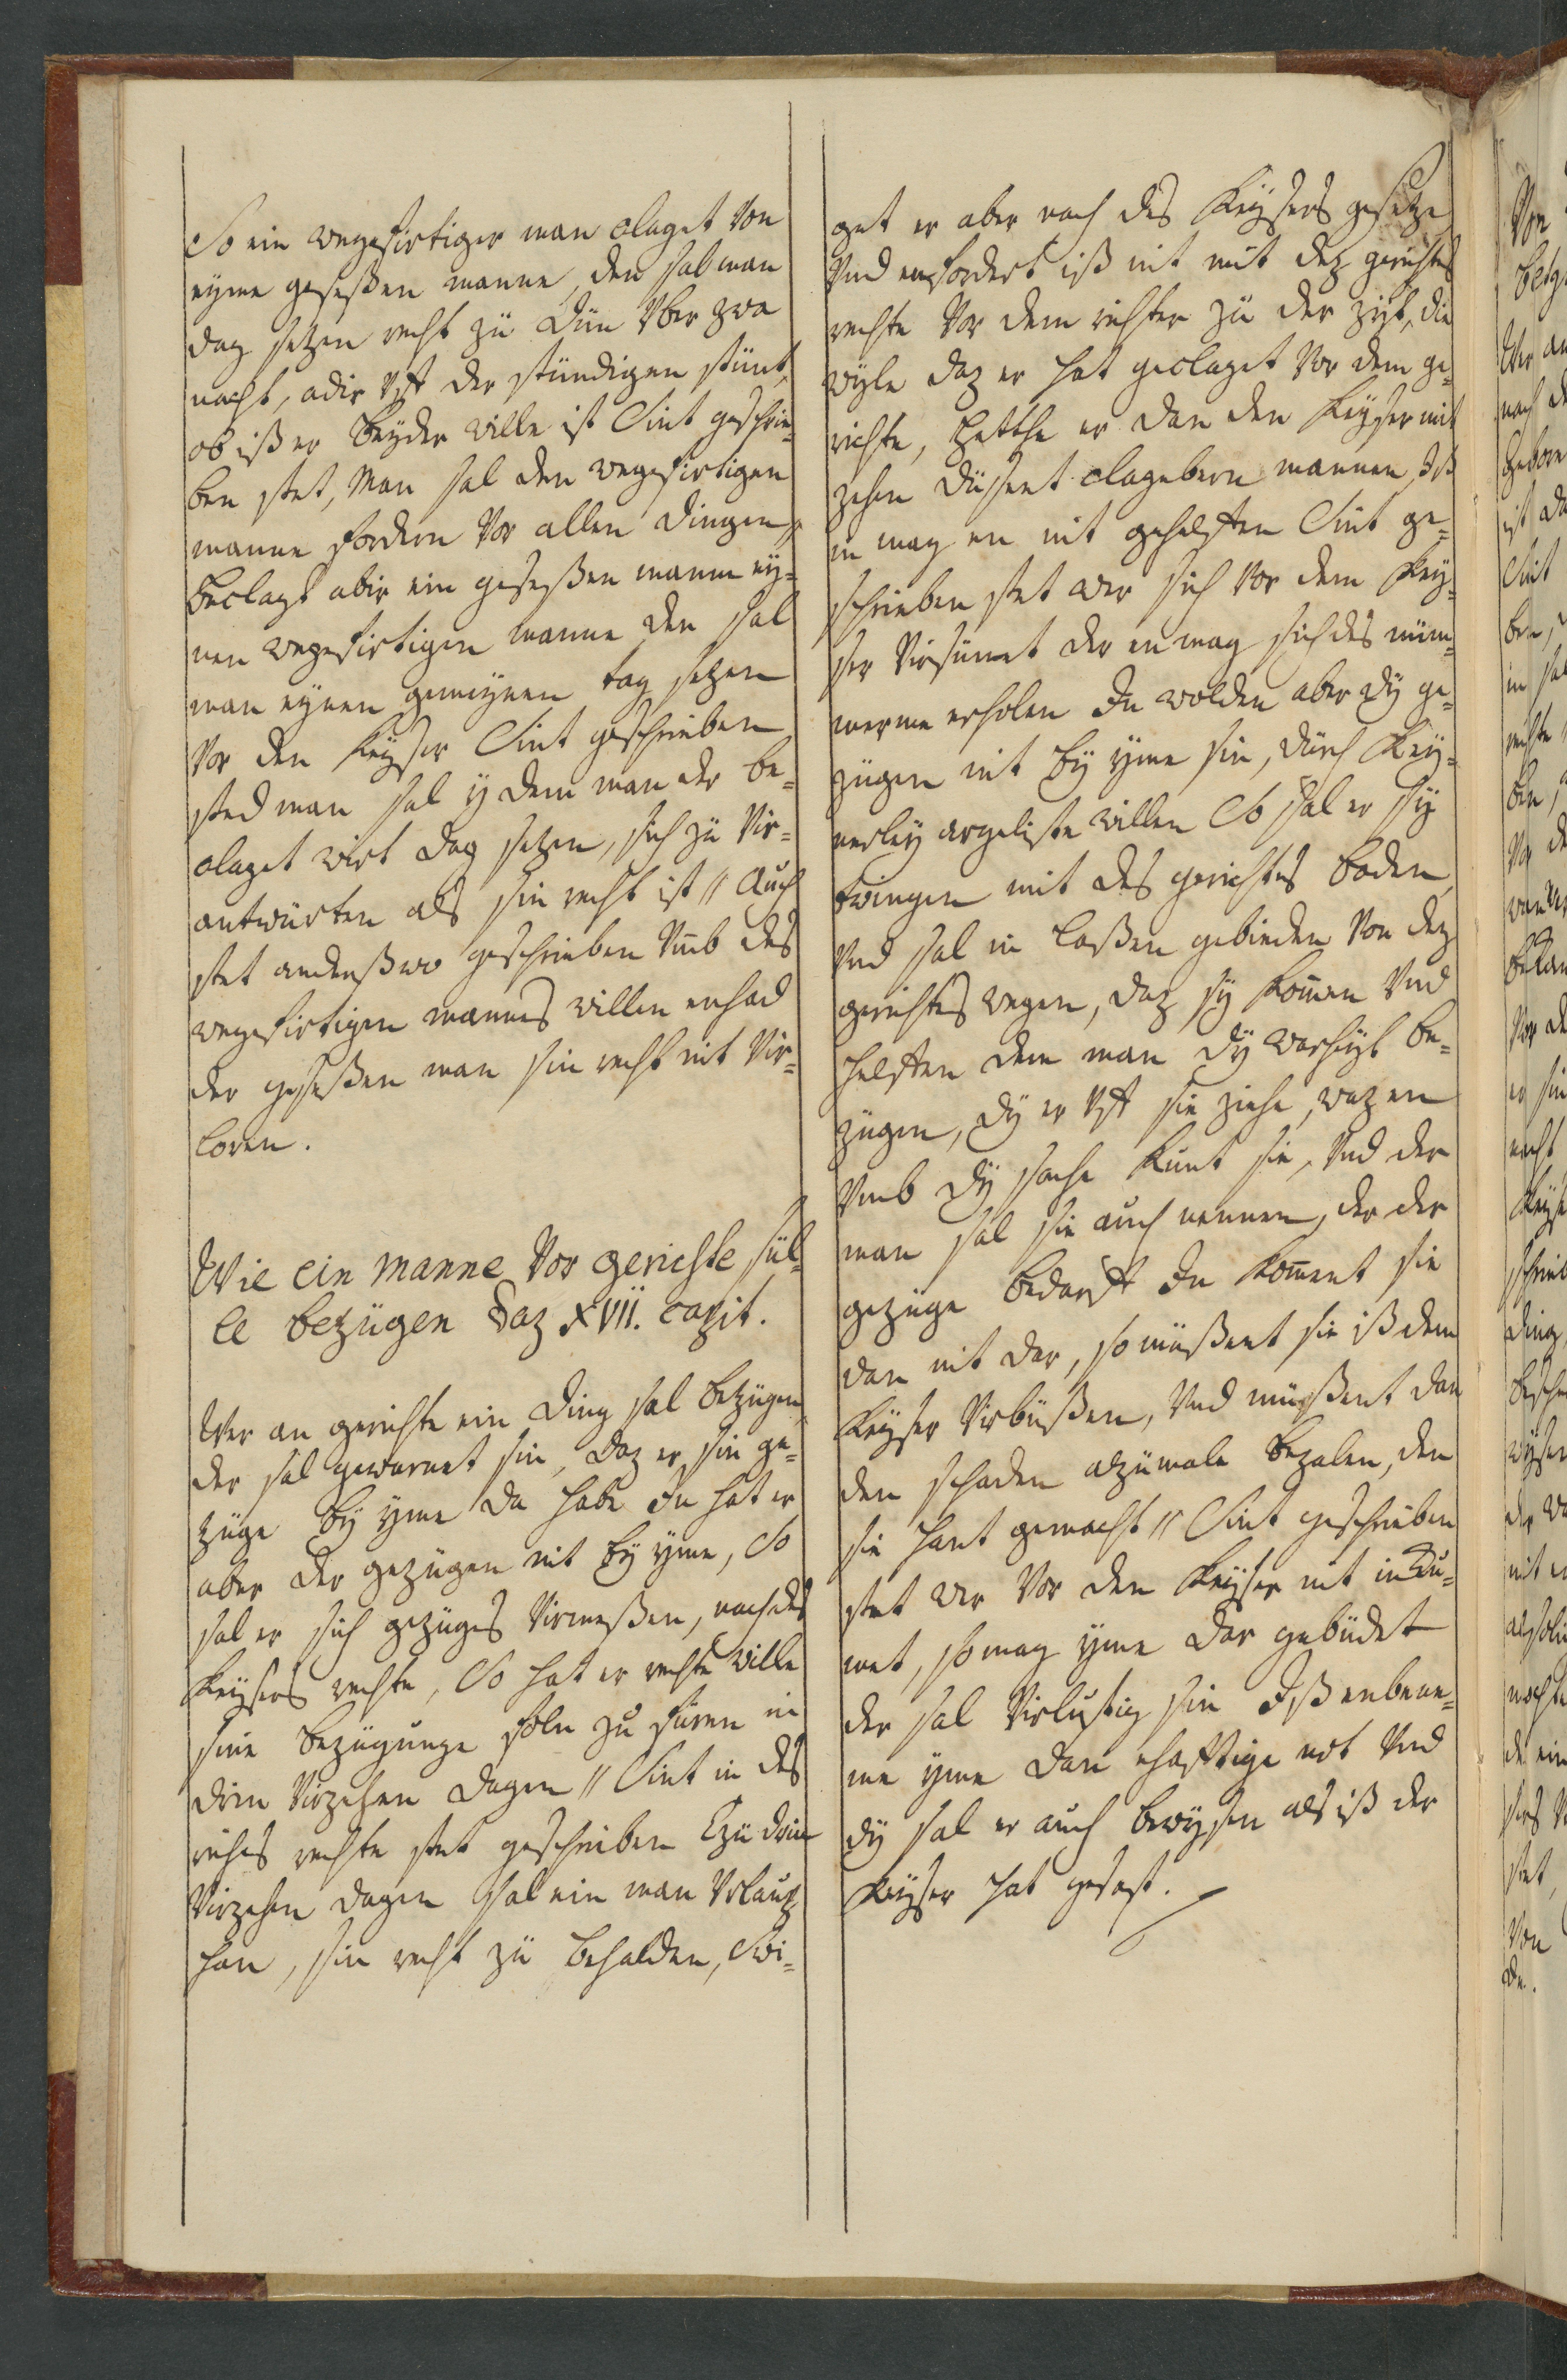 So ein wegefirtiger man claget Von
eyme geseßen manne, den sal man
dag setzen recht zü Dün Vber zwa
nacht, adir Vff der stündigen stünt,
ob iß er beyder wille ist Sint geschrie-
ben stet, Man sal den wegefirtigen
manne fordern Vor allen dingen,
beclagt abir ein geseßen manne ey-
nen wegefirtigen manne den sal
man eynen gemeynen tag setzen
Vor den Keyser Sint geschrieben
sted man sal y dem man der be-
claget wirt dag setzen, sich zü Vir-
antwürten als sin recht ist // Auch
stet anderßwo geschrieben Vmb des
wegefirtigen mannes willen enhad
der geseßen man sin recht nit Vir-
loren.
Wie ein manne Vor gerichte sül-
le bezügen daz XVII. capit.
Wer an gerichte ein ding sal bezügen,
der sal gewarnet sin, daz er sin ge-
züge by yme da habe En hat er
aber der gezügen nit by yme, So
sal er sich gezüges Virmeßen, nach des
Keysers rechte, So hat er rechte wille
sine bezügunge soln zu füren in
drin Virzehen dagen // Sint in des
riches rechte stet geschrieben Czü drin
Virzehen dagen sal ein man Vrlaup
han, sin recht zü behalden, Swi-
get er aber nach des Keysers gesetze
Vnd enfordert iß nit mit dez gerichtes
rechte Vor dem richter zü der zyt, die
wyle daz er hat geclaget Vor dem ge-
richte, Hette er dan den Keyser mit
zehen düsent clagebern mannen Iß
in mag en nit gehelffen Sint ge-
schrieben stet wer sich Vor dem Key-
ser Virsümet der en mag sich des nüm-
merme erholen En wolden aber dy ge-
zügen nit by yme sin, dürch Key-
nerley argeliste willen So sal er sy
twingen mit des gerichtes boden,
Vnd sal in laßen gebieden Von dez
gerichtes wegen, daz sy komen Vnd
helffen dem man dy warheyt be-
zügen, dy er Vff sie ziehe, waz en
Vmb dy sache kunt sie, Vnd der
man sal sie auch nennen, der der
gezüge bedarff En koment sie
dan nit dar, so müßent sie iß dem
Keyser Virbüßen, Vnd müßent dan
den schaden alzümale bezalen, den
sie hant gemacht // Sint geschrieben
stet wer Vor den Keyser nit in Ku-
met, so mag yme dar gebüdet
der sal Virlustig sin Iß enbene-
me yme dan ehafftige not Vnd
dy sal er auch bewysen als iß der
Keyser hat gesast.